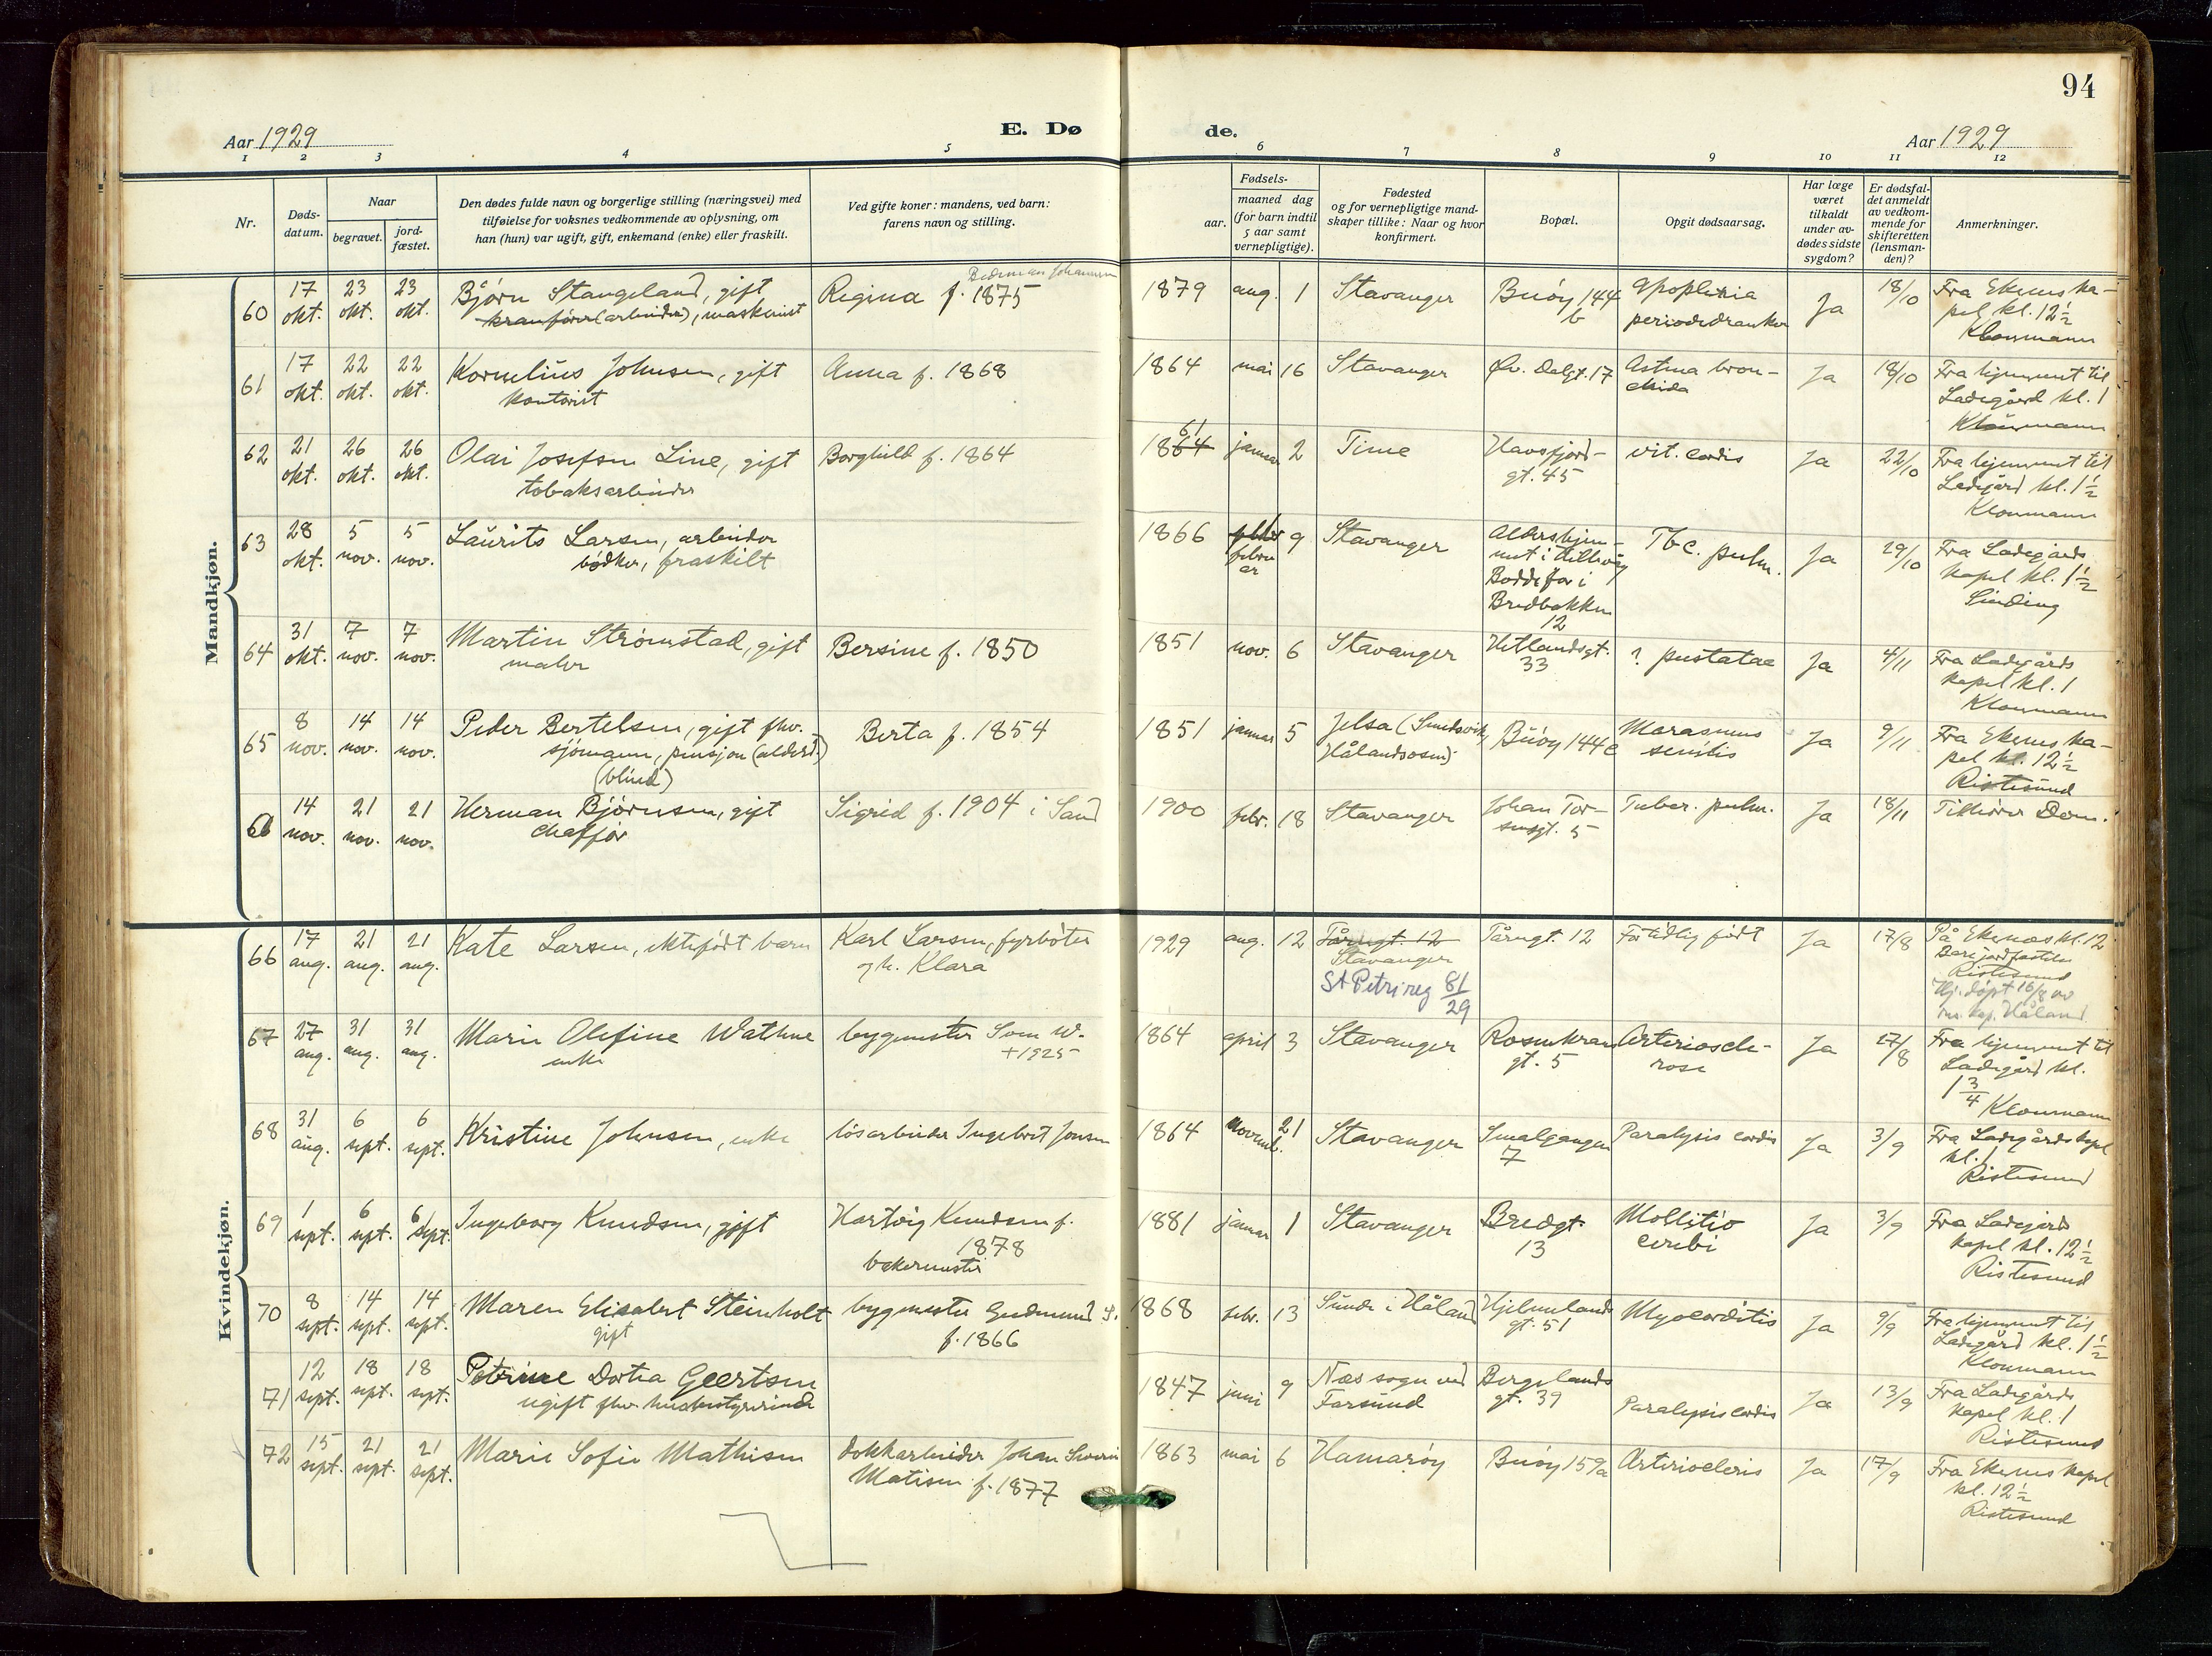 94
Aar 1929
E. Dø
de.
Aar 1929
1 2 3 4 5 6 7 8 9 10 11 12
Nr.
Døds-
datum.
Naar
begravet.
jord-
fæstet.
Den dødes fulde navn og borgerlige stilling (næringsvei) med
tilføielse for voksnes vedkommende av oplysning, om
han (hun) var ugift, gift, enkemand (enke) eller fraskilt.
Ved gifte koner: mandens, ved barn:
farens navn og stilling.
Fødsels-
aar.
maaned dag
(for barn indtil
5 aar samt
vernepligtige).
Fødested
og for vernepligtige mand-
skaper tillike: Naar og hvor
konfirmert.
Bopæl.
Opgit dødsaarsag.
Har læge
været
tilkaldt
under av-
dødes sidste
sygdom?
Er dødsfal-
det anmeldt
av vedkom-
mende for
skifteretten
(lensman-
den)?
Anmerkninger.
Mandkjøn.
60 17 okt. 23 okt. 23 okt. Bjørn Stangeland, gift
kranfører (arbeider), maskinist
Regina f. 1875
1879 aug. 1 Stavanger Buøy 144 b
apoplexia
periodedranker
Ja 18/10 Fra Ekenes ka-
pel kl. 12½
Kloumann
61 17 okt. 22 okt. 22 okt. Kornelius Johnsen, gift
kontorist
Anna f. 1868
1864 mai 16 Stavanger Øv. Dalgt. 17 Astma bron-
chiala
Ja 18/10 Fra hjemmet til
Ladegård kl. 1
Kloumann
62 21 okt. 26 okt. 26 okt. Olai Josefsen Line, gift
tobaksarbeider
Borghild f. 1864
61
1864 januar 2 Time Havsfjord-
gt. 45
vit. cordis Ja 22/10 Fra hjemmet til
Ladegård kl. 1½
Kloumann
63 28 okt. 5 nov. 5 nov. Laurits Larsen, arbeider
bødker, fraskilt
1866 februar 9 Stavanger Aldershjem-
met i Hillevåg
Bodde før i
Bredbakken
12
Tbc. pulm. Ja 29/10 Fra Ladegårds
kapel kl. 1½
Sinding
64 31 okt. 7 nov. 7 nov. Martin Strømstad, gift
maler
Bersine f. 1850
1851 nov. 6 Stavanger Hetlandsgt.
33
? pustatae Ja 4/11 Fra Ladegårds
kapel kl. 1
Kloumann
65 8 nov. 14 nov. 14 nov. Peder Bertelsen, gift fhv.
sjømann, pensjon (alderd.)
(blind)
Berta f. 1854
1851 januar 5 Jelsa (Sandsvik,
Hålandsosen)
Buøy 144c Marasmus
senilis
Ja 9/11 Fra Ekenes ka-
pel kl. 12½
Ristesund
66 14 nov. 21 nov. 21 nov. Herman Bjørnsen, gift
chaffør
Sigrid f. 1904 i Sand
1900 febr. 18 Stavanger Johan Tor-
sensgt. 5
Tuber. pulm. Ja 18/11 Tilhører Dom.
Kvindekjøn.
66 17 aug. 21 aug. 21 aug. Kate Larsen, ektefødt barn
Karl Larsen, fyrbøter
og h. Klara
1929 aug. 12 Tårngt. 12
Stavanger
St Petri reg 81/29
Tårngt. 12 For tidlig født Ja 17/8 På Ekenæs kl. 12
Bare jordfæstelse
Ristesund
Hj. døpt 16/8 av
res. kap. Håland
67 27 aug. 31 aug. 31 aug. Marie Olefine Wathne
enke
bygmester Som W.
+ 1925
1864 april 3 Stavanger Rosenkrans
gt. 5
Arterioscle-
rose
Ja 27/8 Fra hjemmet til
Ladegård kl.
1¾ Kloumann
68 31 aug. 6 sept. 6 sept. Kristine Johnsen, enke
løsarbeider Ingebret Jonsen
1864 novemb. 21 Stavanger Smalgangen
7
Paralysis cordis Ja 3/9 Fra Ladegårds kapel
kl. 1
Ristesund
69 1 sept. 6 sept. 6 sept. Ingeborg Knudsen, gift
Hartvig Knudsen f.
1878
bakermester
1881 januar 1 Stavanger Bredgt.
13
Mollitio
cerebi
Ja 3/9 Fra Ladegårds
kapel kl. 12½
Ristesund
70 8 sept. 14 sept. 14 sept. Maren Elisabet Steinholt
gift
bygmester Gudmund S.
f. 1866
1868 febr. 13 Sunde i Håland Hjelmelands
gt. 51
Myocarditis Ja 9/9 Fra hjemmet til
Ladegård kl. 1½
Kloumann
71 12 sept. 18 sept. 18 sept. Petrine Dortea Geertsen
ugift fhv. husbestyrerinde
1847 juni 9 Næs sogn ved
Farsund
Bergelands
gt. 39
Paralysis cordis Ja 13/9 Fra Ladegårds
kapel kl. 1
Ristesund
72 15 sept. 21 sept. 21 sept. Marie Sofie Mathisen
dokkarbeider Johan Severin
Matisen f. 1877
1863 mai 6 Hamarøy Buøy 159a Arteriocleris Ja 17/9 Fra Ekenes kapel
kl. 12½
Ristesund